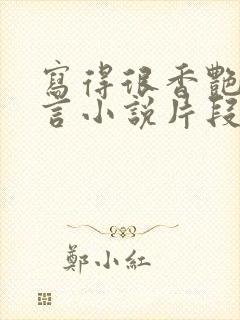 寫得很香艷
言小說片段
鄭小紅